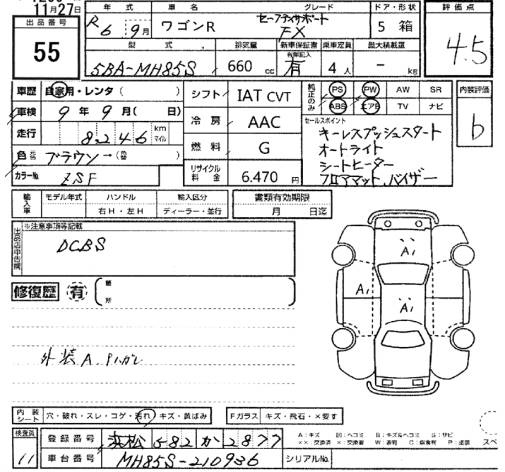 11月27日
出品番号
55
年式 車名 グレード ドア・形状
R6年9月 ワゴンR セーフティサポート FX 5 箱
評価点
4.5
型式 排気量 新車保証書 乗車定員 最大積載量
5BA-MH85S 660cc 有 4人 - kg
車歴 自家用・レンタ( )
車検 9年9月( 日)
走行 8246 km マイル
色 ブラウン→( )
カラーNo ZSF
シフト IAT CVT
冷房 AAC
燃料 G
リサイクル料金 6.470円
純正のみ PS PW AW SR
ABS エアB TV ナビ
内装評価
b
セールスポイント
キーレスプッシュスタート
オートライト
シートヒーター
フロアマット、バイザー
輸入車 モデル年式 ハンドル 輸入区分
右H・左H ディーラー・並行
書類有効期限
月 日迄
※注意事項等記載
DCBS
修復歴 有 箇所
A1
A1
A1
外装A.Pハガレ
内装シート 穴・破れ・スレ・コゲ・汚れ・キズ・黄ばみ
Fガラス キズ・飛石・×要す
検査員
11
登録番号 浜松 582 か 2877
車台番号 MH85S-210936
シリアルNo.